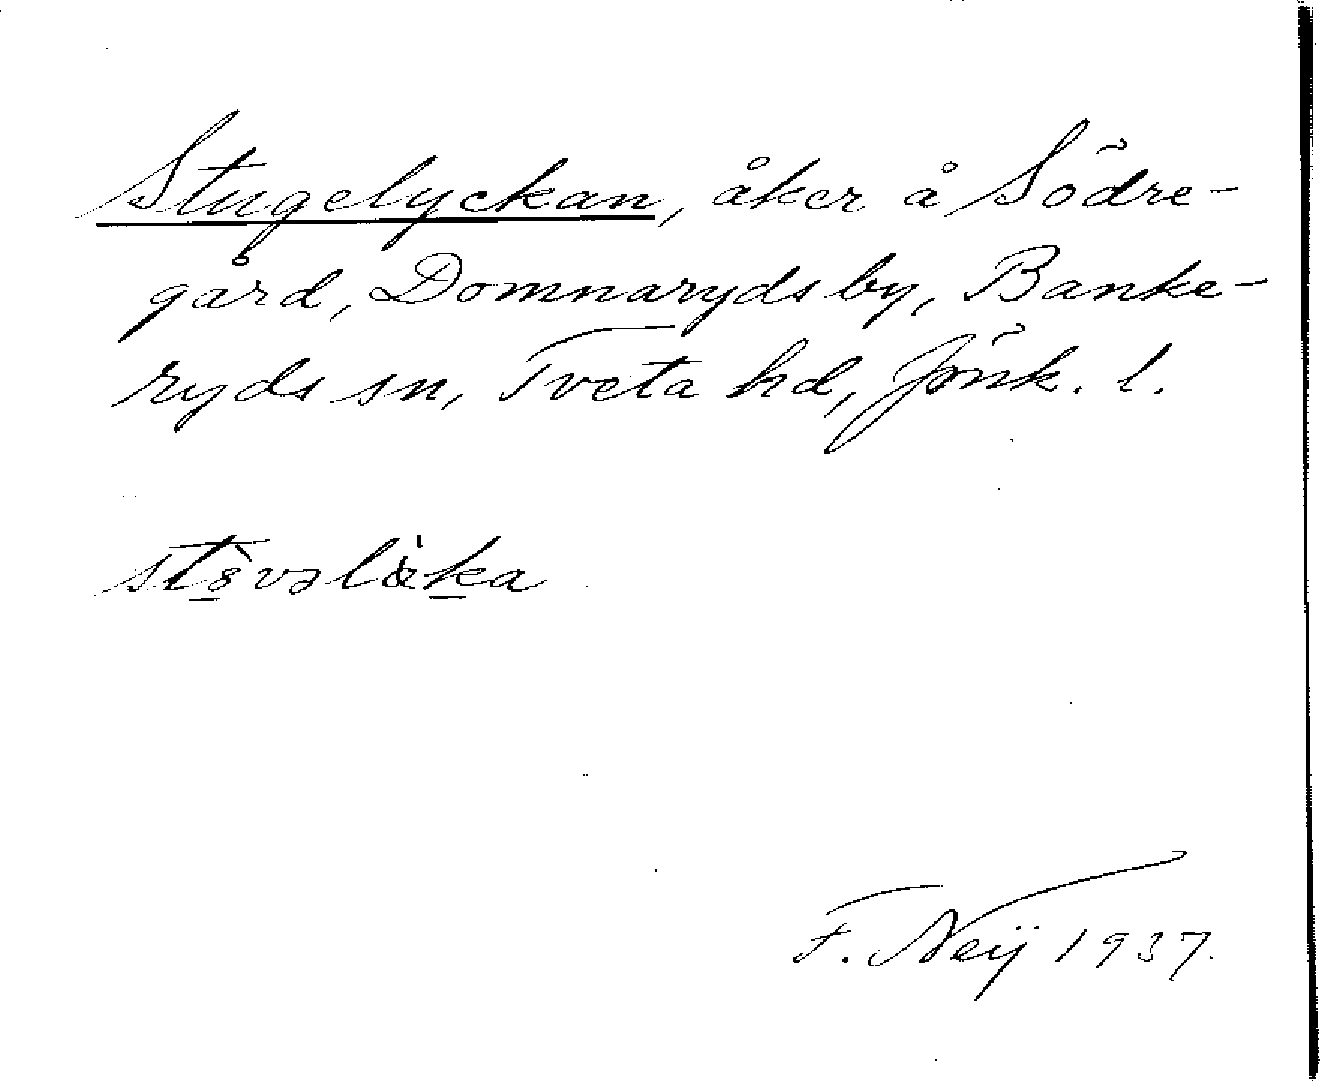 Stugelyckan, åker å Södre-
gård, Domnaryds by, Banke-
ryds sn, Tveta hd, Jönk. l.
F. Neij 1937.